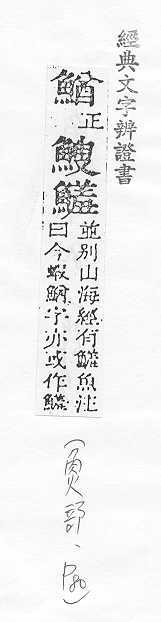 經典文字辨證書
鰌正䱸鱃
並別山海經有鱃魚注
曰今蝦鰌字亦或作鱃
(魚部、P80)